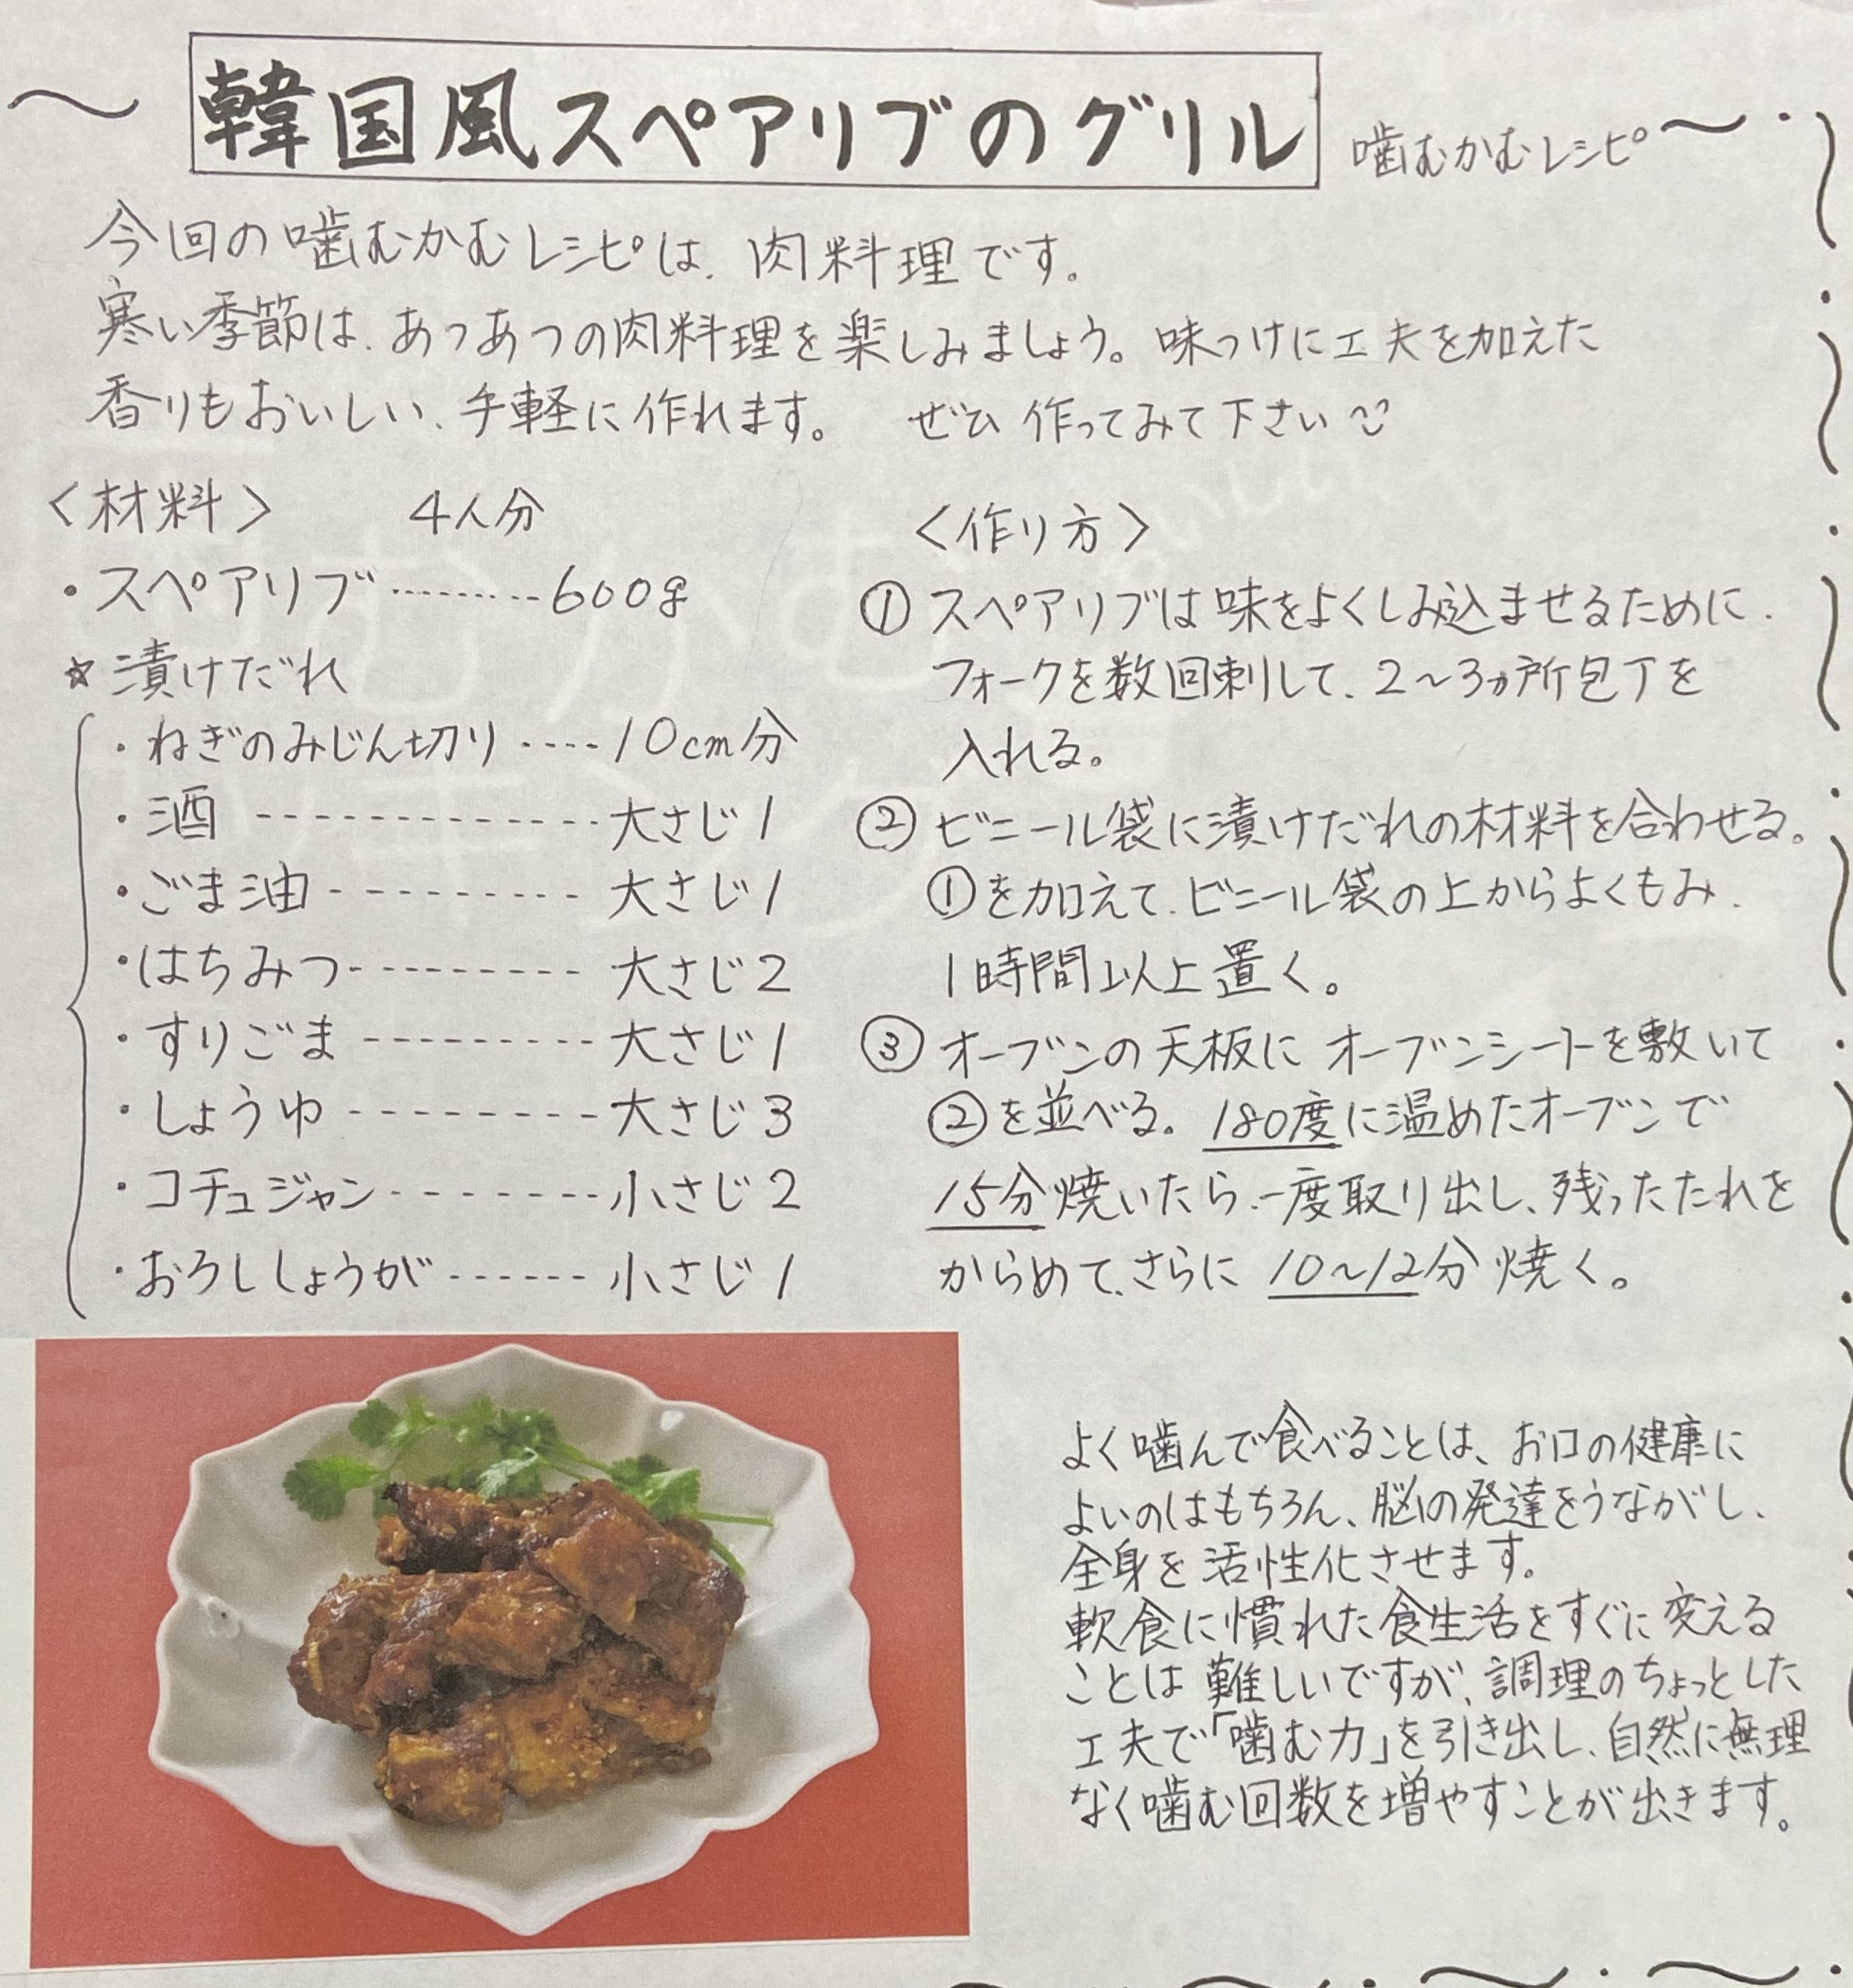 ～ 韓国風スペアリブのグリル 噛むかむレシピ～
今回の噛むかむレシピは、肉料理です。
寒い季節は、あつあつの肉料理を楽しみましょう。味つけに工夫を加えた
香りもおいしい、手軽に作れます。 ぜひ作ってみて下さい
〈材料〉 4人分
・スペアリブ……… 600g
☆漬けだれ
・ねぎのみじん切り ---- 10cm分
・酒 ------------- 大さじ1
・ごま油 --------- 大さじ1
・はちみつ --------- 大さじ2
・すりごま --------- 大さじ1
・しょうゆ --------- 大さじ3
・コチュジャン ------- 小さじ2
・おろししょうが ------ 小さじ1
〈作り方〉
① スペアリブは味をよくしみ込ませるために、
フォークを数回刺して、2～3ヵ所包丁を
入れる。
② ビニール袋に漬けだれの材料を合わせる。
①を加えて、ビニール袋の上からよくもみ、
1時間以上置く。
③ オーブンの天板にオーブンシートを敷いて
②を並べる。180度に温めたオーブンで
15分焼いたら、一度取り出し、残ったたれを
からめて、さらに10～12分焼く。
よく噛んで食べることは、お口の健康に
よいのはもちろん、脳の発達をうながし、
全身を活性化させます。
軟食に慣れた食生活をすぐに変える
ことは難しいですが、調理のちょっとした
工夫で「噛む力」を引き出し、自然に無理
なく噛む回数を増やすことが出きます。